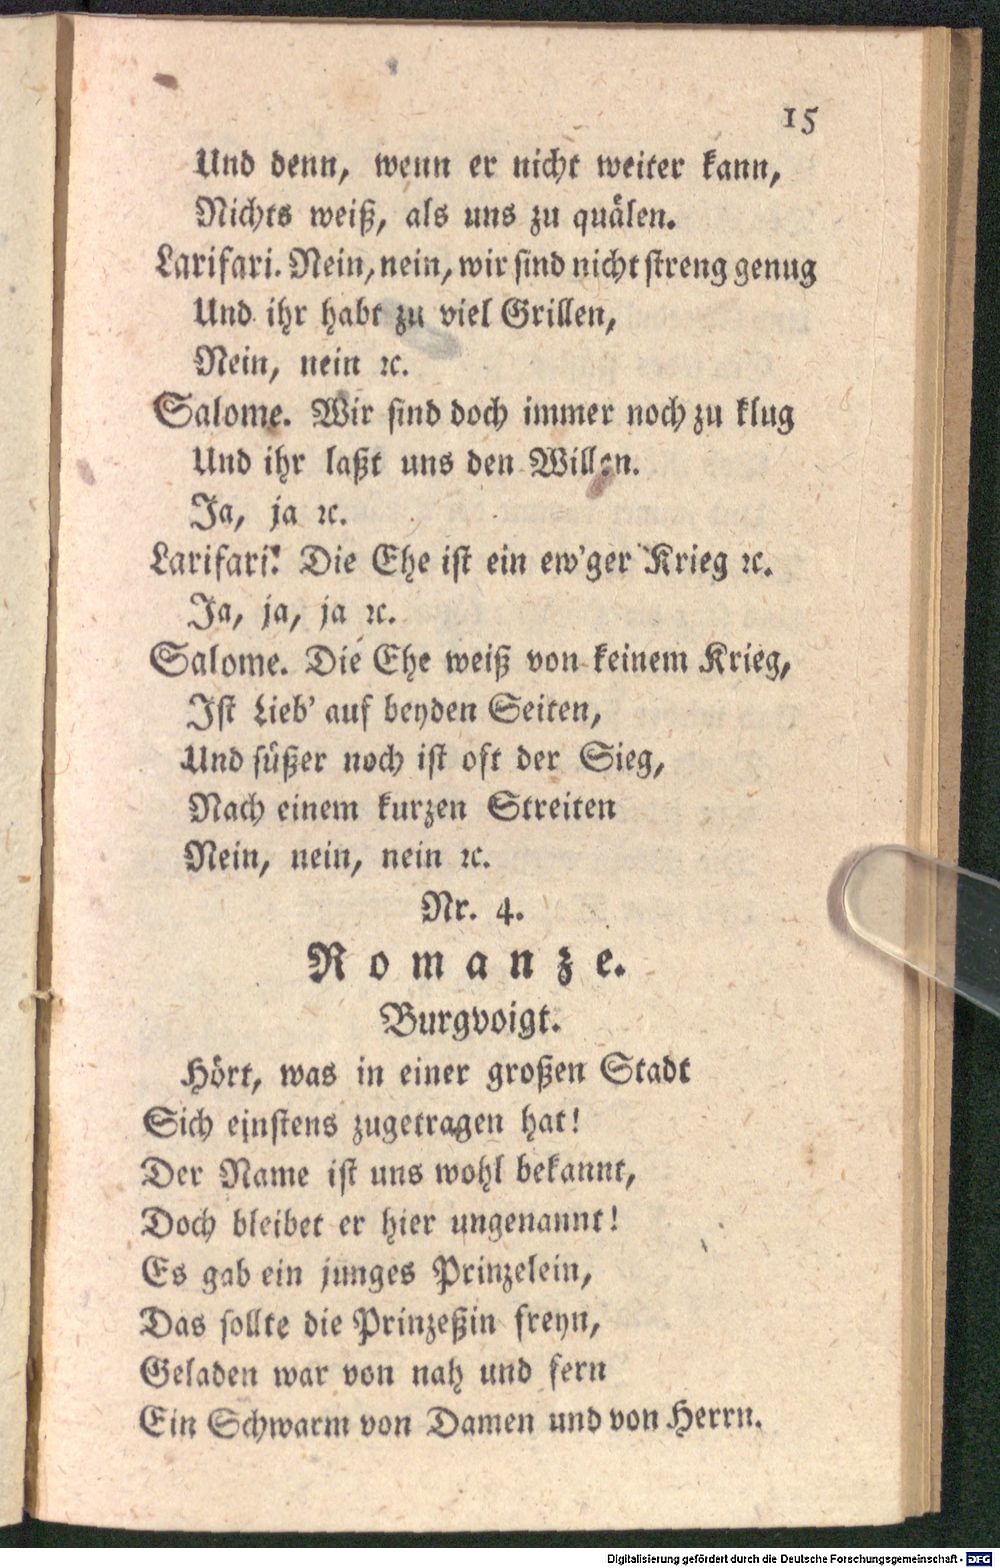 15
Und denn, wenn er nicht weiter kann,
Nichts weiß, als uns zu quälen.
Larifari. Nein, nein, wir sind nicht streng genug
Und ihr habt zu viel Grillen,
Nein, nein ꝛc.
Salome. Wir sind doch immer noch zu klug
Und ihr laßt uns den Willen.
Ja, ja ꝛc.
Larifari. Die Ehe ist ein ew'ger Krieg ꝛc.
Ja, ja, ja ꝛc.
Salome. Die Ehe weiß von keinem Krieg,
Ist Lieb' auf beyden Seiten,
Und süßer noch ist oft der Sieg,
Nach einem kurzen Streiten
Nein, nein, nein ꝛc.
Nr. 4.
Romanze.
Burgvoigt.
Hört, was in einer großen Stadt
Sich einstens zugetragen hat!
Der Name ist uns wohl bekannt,
Doch bleibet er hier ungenannt!
Es gab ein junges Prinzelein,
Das sollte die Prinzeßin freyn,
Geladen war von nah und fern
Ein Schwarm von Damen und von Herrn.
Digitalisierung gefördert durch die Deutsche Forschungsgemeinschaft - DFG